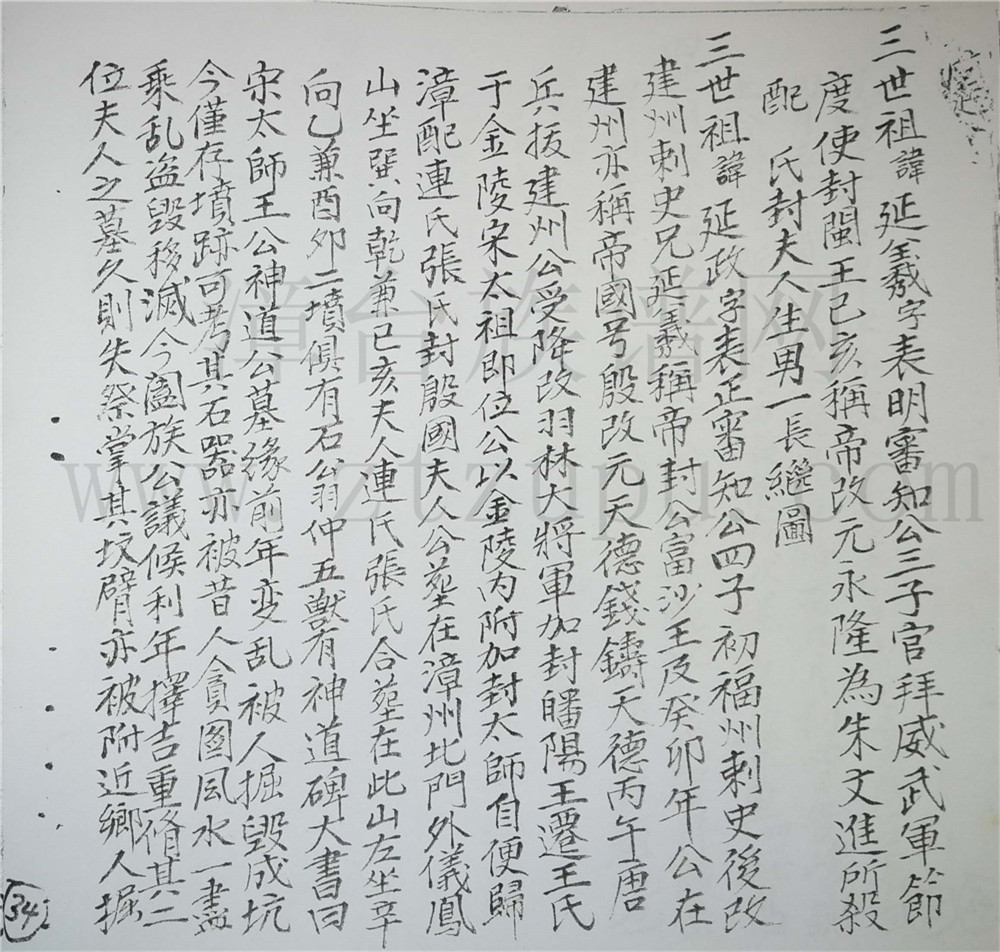 三世祖諱延羲字表明審知公三子官拜威武軍節
度使封閩王己亥稱帝改元永隆為朱文進所殺
配　氏封夫人生男一長繼圖
三世祖諱延政字表正審知公四子初福州刺史後改
建州刺史兄延羲稱帝封公富沙王及癸卯年公在
建州亦稱帝國号殷改元天德錢鑄天德丙午唐
兵拔建州公受降改羽林大將軍加封鄱陽王遷王氏
于金陵宋太祖即位公以金陵內附加封太師自便歸
漳配連氏張氏封殷國夫人公塟在漳州北門外儀鳳
山坐巽向乾兼巳亥夫人連氏張氏合塟在此山左坐辛
向乙兼酉卯二墳俱有石公翁仲五獸有神道碑大書曰
宋太師王公神道公墓緣前年变乱被人掘毀成坑
今僅存墳跡可考其石器亦被昔人貪圖風水一盡
乘乱盗毀移滅今闔族公議候利年擇吉重脩其二
位夫人之墓久則失祭掌其坟臂亦被附近鄉人掘
34
漳台族谱网
www.ztzupu.com